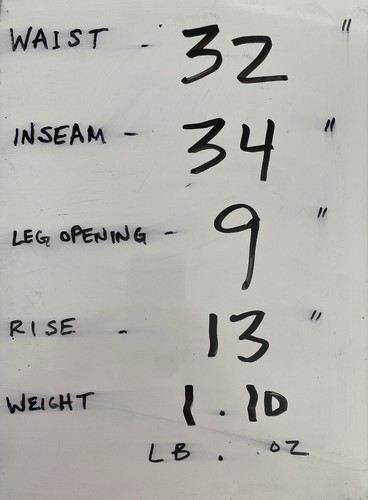 WAIST - 32 "
INSEAM - 34 "
LEG OPENING - 9 "
RISE - 13 "
WEIGHT 1 . 10
LB . OZ